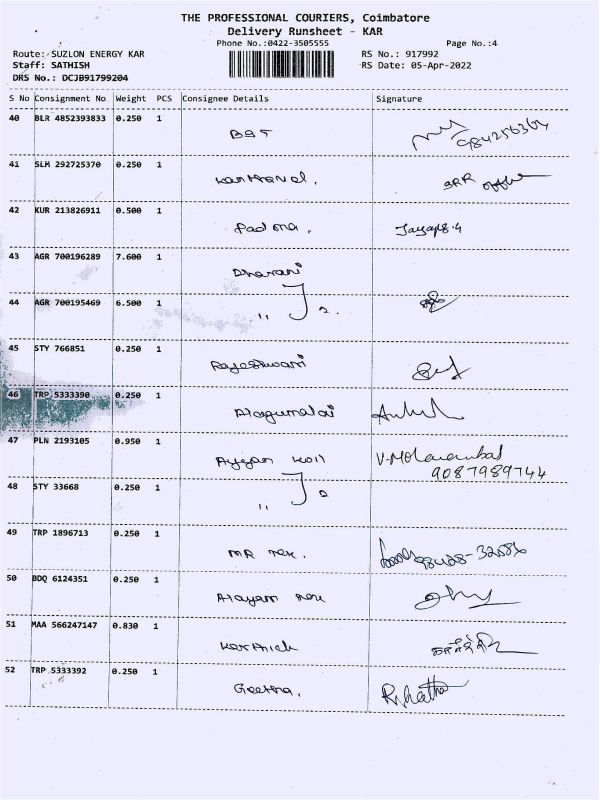 THE PROFESSIONAL COURIERS, Coimbatore
Delivery Runsheet - KAR
Phone No.:0422-3505555 Page No.:4
Route: SUZLON ENERGY KAR RS No.: 917992
Staff: SATHISH RS Date: 05-Apr-2022
DRS No.: DCJB91799204
S No Consignment No Weight PCS Consignee Details Signature
40 BLR 4852393833 0.250 1
41 SLM 292725370 0.250 1
42 KUR 213826911 0.500 1 Padma,
43 AGR 700196289 7.600 1 Dharani
44 AGR 700195469 6.500 1 ,, 2.
45 STY 766851 0.250 1 Rajeshwari
46 TRP 5333390 0.250 1 Alagumalai
47 PLN 2193105 0.950 1 Ayyan Koil 9087989744
48 STY 33668 0.250 1 ,, 2
49 TRP 1896713 0.250 1 MR Tex.
50 BDQ 6124351 0.250 1
51 MAA 566247147 0.830 1 Karthick
52 TRP 5333392 0.250 1 Geetha,